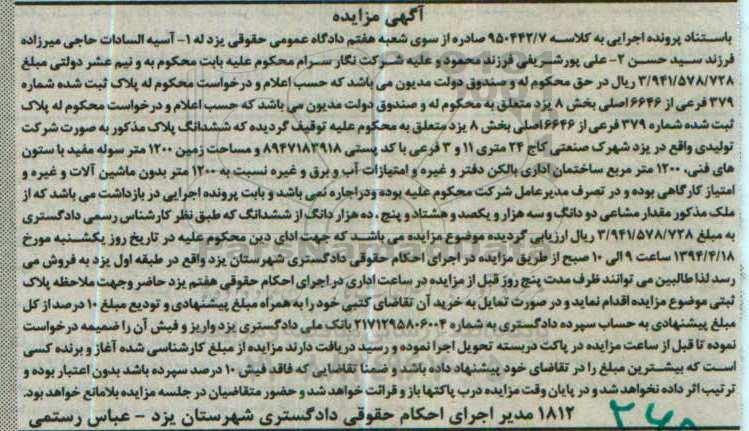 آگهی مزایده
باستناد پرونده اجرایی به کلاسه ۹۵۰۴۴۲/۷ صادره از سوی شعبه هفتم دادگاه عمومی حقوقی یزد له ۱- آسیه السادات حاجی میرزاده
فرزند سید حسن ۲- علی پورشریفی فرزند محمود و علیه شرکت نگار سرام محکوم علیه بابت محکوم به و نیم عشر دولتی مبلغ
۳/۹۴۱/۵۷۸/۷۲۸ ریال در حق محکوم له و صندوق دولت مدیون می باشد که حسب اعلام و درخواست محکوم له پلاک ثبت شده شماره
۳۷۹ فرعی از ۶۶۴۶ اصلی بخش ۸ یزد متعلق به محکوم له و صندوق دولت مدیون می باشد که حسب اعلام و درخواست محکوم له پلاک
ثبت شده شماره ۳۷۹ فرعی از ۶۶۴۶اصلی بخش ۸ یزد متعلق به محکوم علیه توقیف گردیده که ششدانگ پلاک مذکور به صورت شرکت
تولیدی واقع در یزد شهرک صنعتی کاج ۲۴ متری ۱۱ و ۳ فرعی با کد پستی ۸۹۴۷۱۸۳۹۱۸ و مساحت زمین ۱۲۰۰ متر سوله مفید با ستون
های فنی، ۱۲۰۰ متر مربع ساختمان اداری بالکن دفتر و غیره و امتیازات آب و برق و غیره نسبت به ۱۲۰۰ متر بدون ماشین آلات و غیره و
امتیاز کارگاهی بوده و در تصرف مدیرعامل شرکت محکوم علیه بوده و دراجاره نمی باشد و بابت پرونده اجرایی در بازداشت می باشد که از
ملک مذکور مقدار مشاعی دو دانگ و سه هزار و یکصد و هشتاد و پنج ، ده هزار دانگ از ششدانگ که طبق نظر کارشناس رسمی دادگستری
به مبلغ ۳/۹۴۱/۵۷۸/۷۲۸ ریال ارزیابی گردیده موضوع مزایده می باشد که جهت ادای دین محکوم علیه در تاریخ روز یکشنبه مورخ
۱۳۹۴/۴/۱۸ ساعت ۹ الی ۱۰ صبح از طریق مزایده در اجرای احکام حقوقی دادگستری شهرستان یزد واقع در طبقه اول یزد به فروش می
رسد لذا طالبین می توانند ظرف مدت پنج روز قبل از مزایده در ساعت اداری در اجرای احکام حقوقی هفتم یزد حاضر وجهت ملاحظه پلاک
ثبتی موضوع مزایده اقدام نماید و در صورت تمایل به خرید آن تقاضای کتبی خود را به همراه مبلغ پیشنهادی و تودیع مبلغ ۱۰ درصد از کل
مبلغ پیشنهادی به حساب سپرده دادگستری به شماره ۲۱۷۱۲۹۵۸۰۶۰۰۴ بانک ملی دادگستری یزد واریز و فیش آن را ضمیمه درخواست
نموده تا قبل از ساعت مزایده در پاکت دربسته تحویل اجرا نموده و رسید دریافت دارند مزایده از مبلغ کارشناسی شده آغاز و برنده کسی
است که بیشترین مبلغ را در تقاضای خود پیشنهاد داده باشد و ضمنا تقاضایی که فاقد فیش ۱۰ درصد سپرده باشد بدون اعتبار بوده و
ترتیب اثر داده نخواهد شد و در پایان وقت مزایده درب پاکتها باز و قرائت خواهد شد و حضور متقاضیان در جلسه مزایده بلامانع خواهد بود.
۱۸۱۲ مدیر اجرای احکام حقوقی دادگستری شهرستان یزد - عباس رستمی